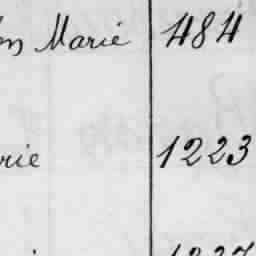 Marie 484
rie 1223